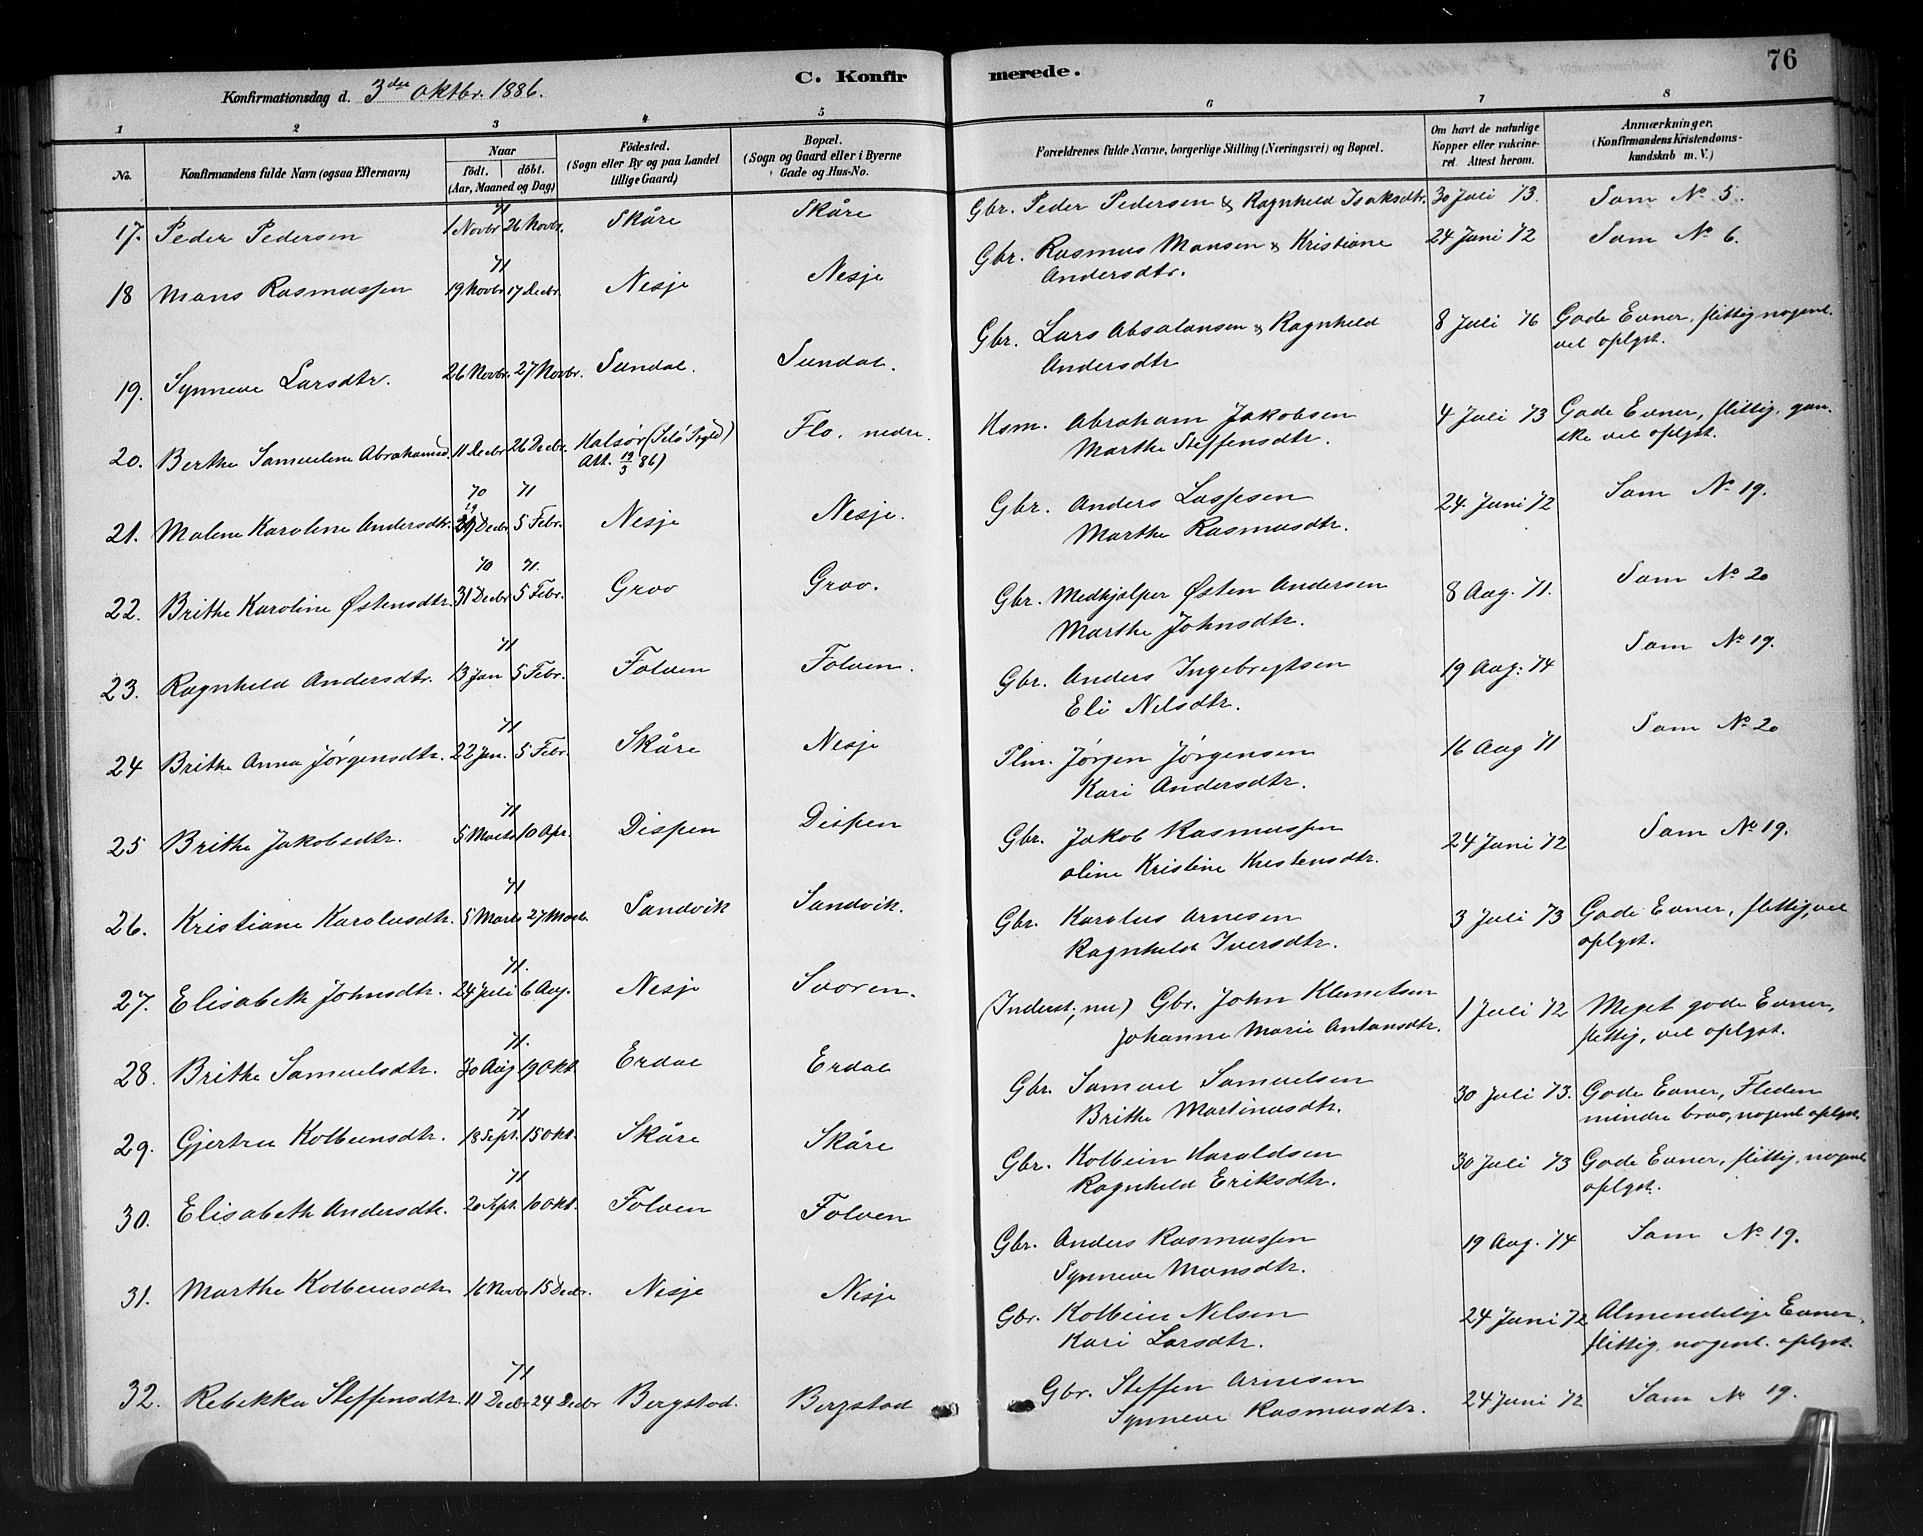 76
Konfirmationsdag d. 3die Oktbr. 1886.
C. Konfirmerede.
1 2 3 4 5 6 7 8
No. Konfirmandens fulde Navn (ogsaa Efternavn) Naar födt. döbt. (Aar, Maaned og Dag) Födested. (Sogn eller By og paa Landet lillige Gaard) Bopæl. (Sogn og Gaard eller i Byerne Gade og Hus-No. Forældrenes fulde Navne, borgerlige Stilling (Næringsvei) og Bopæl. Om havt de naturlige Kopper eller vakcineret. Attest herom. Anmærkninger. (Konfirmandens Kristendomskundskab m. V.)
17. Peder Pedersen 71 1 Novbr. 26 Novbr. Skåre Skåre Gbr. Peder Pedersen & Ragnheld Isaksdtr. 30 Juli 73. Som No 5.
18 Mons Rasmussen 71 19 Novbr. 17 Decbr. Nesje Nesje Gbr. Rasmus Monsen & Kristiane 24 Juni 72 Som No 6.
Andersdtr.
19. Synneve Larsdtr. 26 Novbr. 27 Novbr. Sundal. Sundal. Gbr. Lars Absalonsen & Ragnheld 8 Juli 76 Gode Evner, flittig, nogenl.
Andersdtr vel oplyst.
20. Berthe Samueline Abrahamsd. 11 Decbr. 26 Decbr. Kalsør (Selø Sogn) Flo. nedre. Hsm. Abraham Jakobsen 4 Juli 73 Gode Evner, flittig, gan-
Att. 19/5 86) Marthe Steffensdtr. ske vel oplyst.
21. Malene Karoline Andersdtr. 70 29 Decbr. 71 5 Febr. Nesje Nesje. Gbr. Anders Lassesen 24 Juni 72 Som No 19.
Marthe Rasmusdtr.
22. Brithe Karoline Østensdtr. 70 31 Decbr. 71. 5 Febr. Grov Grov. Gbr. Medhjælper Østen Andersen 8 Aug. 71. Som No 20
Marthe Johnsdtr.
23. Ragnheld Andersdtr. 71 13 Jan 5 Febr. Folven Folven. Gbr. Anders Ingebregtsen 19 Aug. 74 Som No 19.
Eli Nelsdtr.
24 Brithe Anna Jørgensdtr. 71 22 Jan. 5 Febr. Skåre Nesje Plm. Jørgen Jørgensen 16 Aug 71 Som No 20
Kari Andersdtr.
25 Brithe Jakobsdtr. 71 5 Marts 10 Apr. Dispen Dispen Gbr. Jakob Rasmussen 24 Juni 72 Som No 19.
Oline Kristine Kristensdtr.
26. Kristiane Karolusdtr. 71 5 Marts 27 Marts. Sandvik Sandvik. Gbr. Karolus Arnesen 3 Juli 73 Gode Evner, flittig, vel
Ragnheld Iversdtr. oplyst.
27. Elisabeth Johnsdtr. 71. 24 Juli 6 Aug. Nesje Svoren. (Inderst; nu) Gbr. John Klemetsen 1 Juli 72 Meget gode Evner,
Johanne Marie Antonsdtr. flittig, vel oplyst.
28. Brithe Samuelsdtr. 71. 30 Aug 19 Okt. Erdal Erdal Gbr. Samuel Samuelsen 30 Juli 73. Gode Evner, Fliden
Brithe Martinusdtr. mindre brav, nogenl oplyst.
29. Gjertrue Kolbeinsdtr. 71 18 Sept. 15 Okt. Skåre Skåre Gbr. Kolbein Haraldsen 30 Juli 73 Gode Evner, flittig, nogenl.
Ragnheld Eriksdtr. oplyst.
30. Elisabeth Andersdtr. 71 20 Sept. 10 Okt. Folven Folven Gbr. Anders Rasmussen 19 Aug. 74 Som No 19.
Synneve Monsdtr.
31. Marthe Kolbeinsdtr 16 Novbr. 15 Decbr. Nesje Nesje Gbr. Kolbein Nelsen 24 Juni 72 Almendelige Evner,
Kari Larsdtr. flittig, nogenl. oplyst.
32. Rebekka Steffensdtr. 71 11 Decbr 24 Decbr Bergstad. Bergstad Gbr. Steffen Arnesen 24 Juni 72 Som No 19.
Synneve Rasmusdtr.